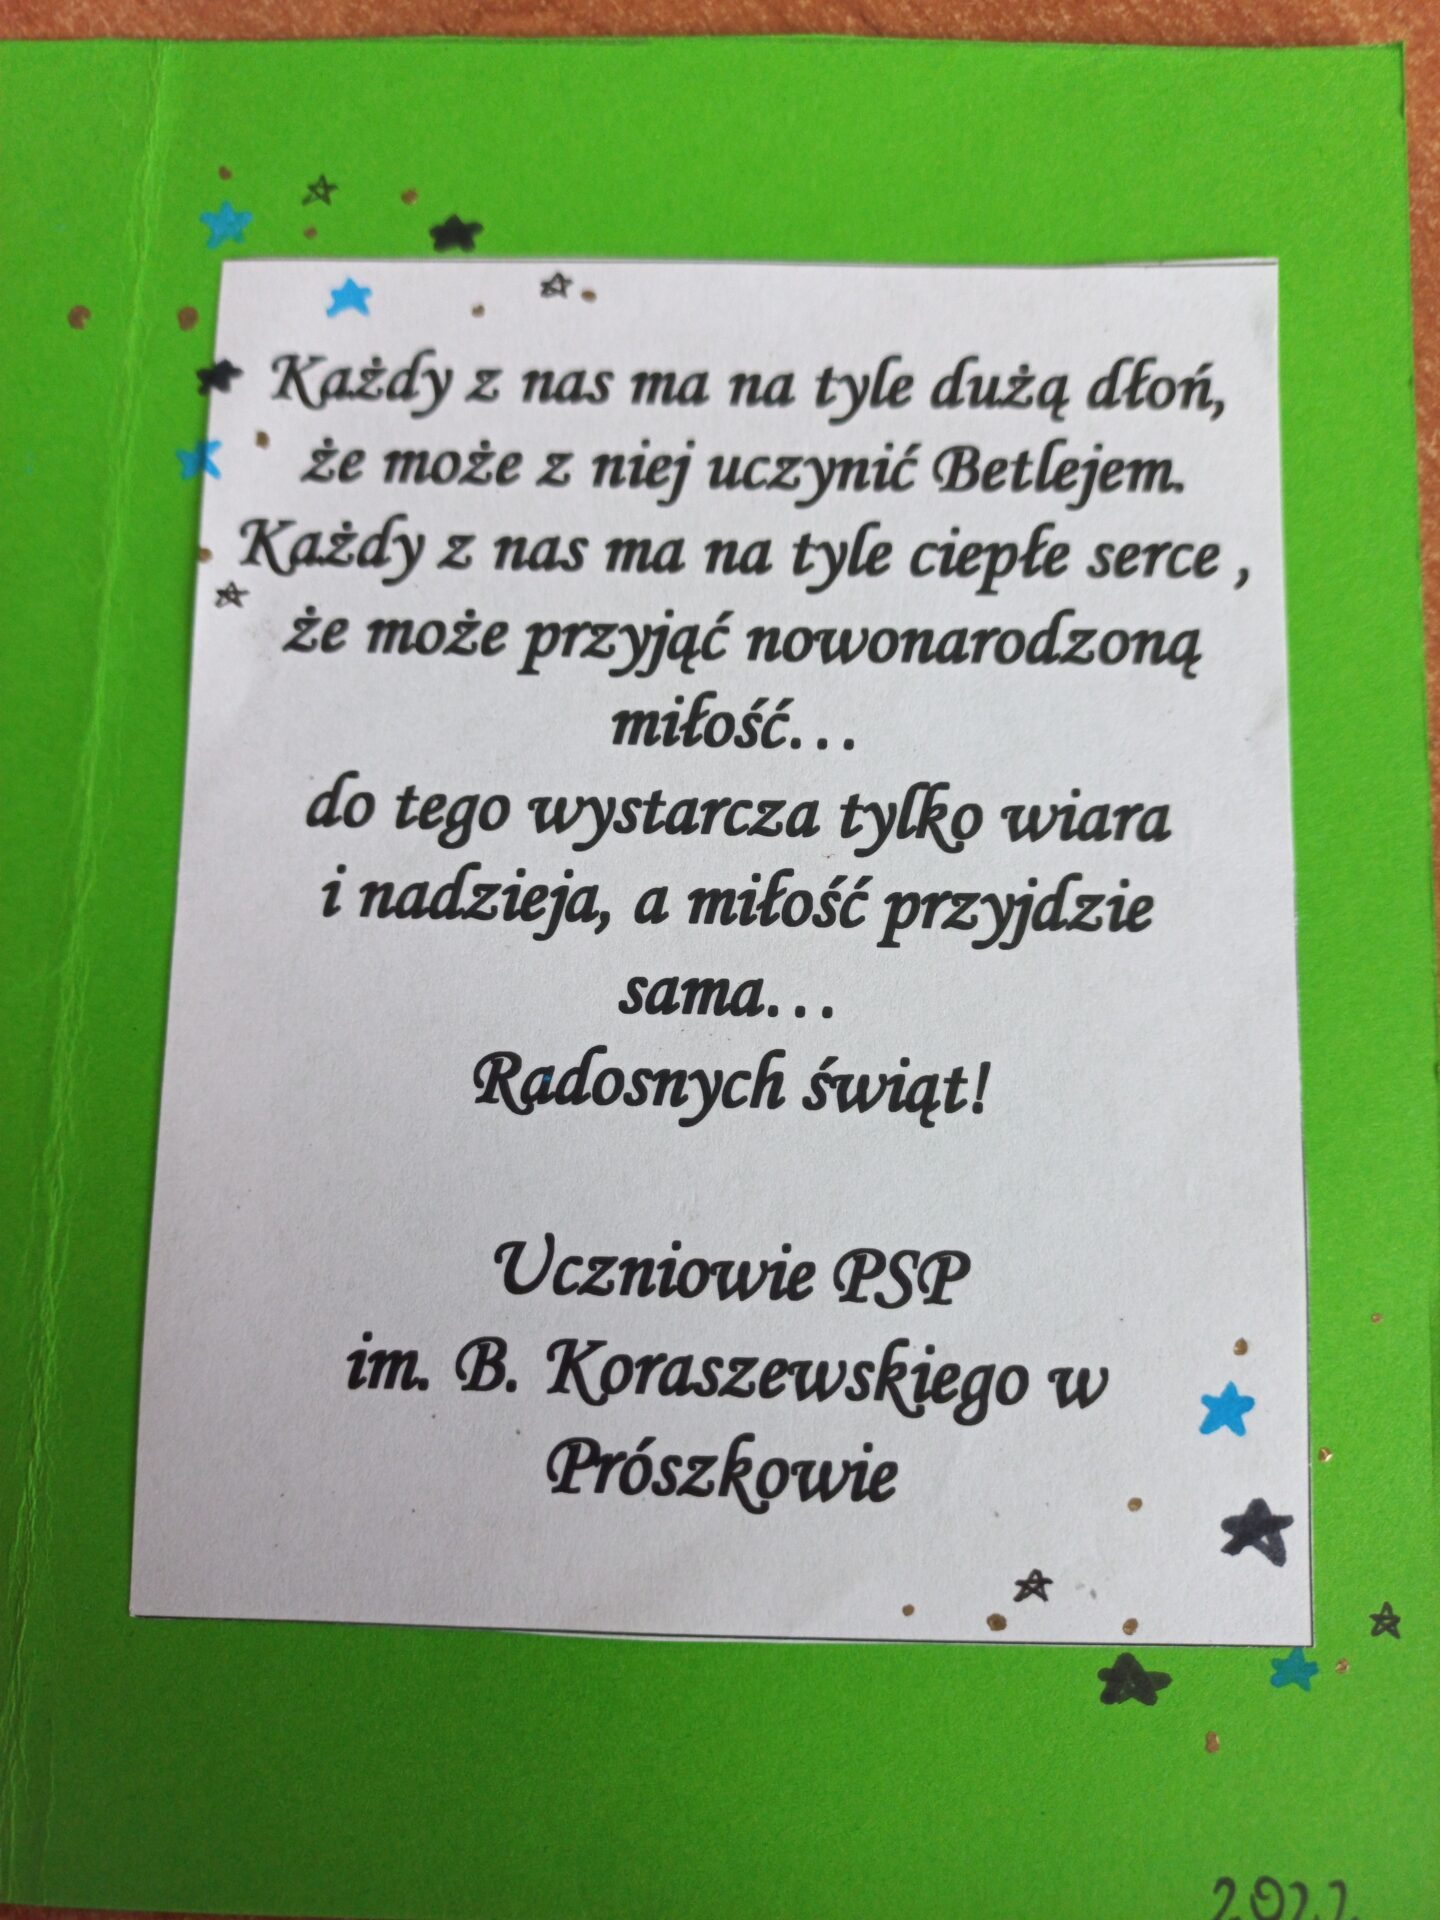 Każdy z nas ma na tyle dużą dłoń,
że może z niej uczynić Betlejem.
Każdy z nas ma na tyle ciepłe serce ,
że może przyjąć nowonarodzoną
miłość…
do tego wystarcza tylko wiara
i nadzieja, a miłość przyjdzie
sama…
Radosnych świąt!
Uczniowie PSP
im. B. Koraszewskiego w
Prószkowie
2022